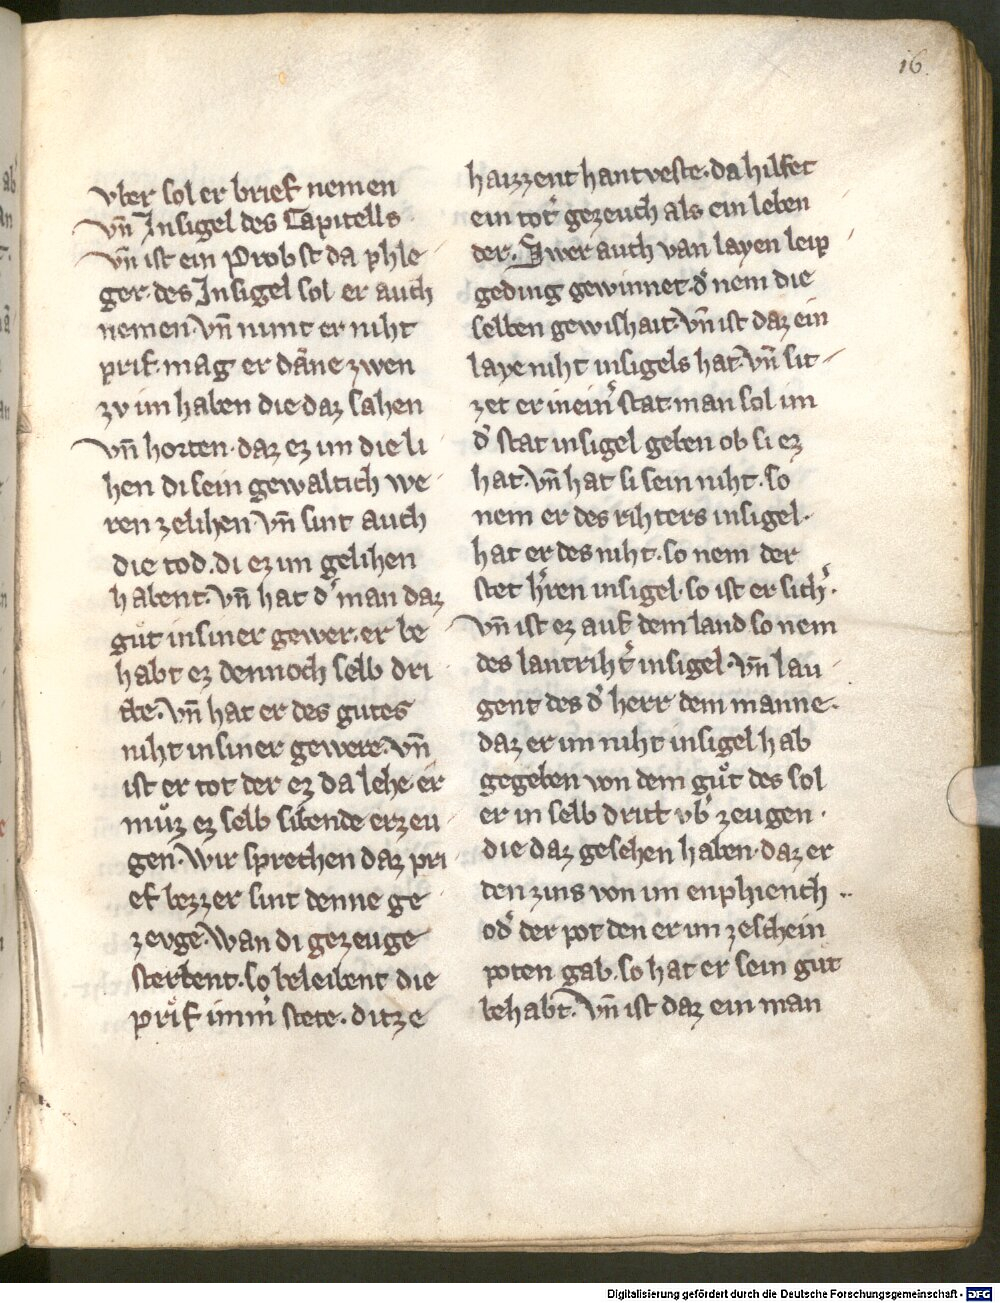 16.
vber sol er brief nemen
vn̄ Insigel des Capitells
vn̄ ist ein Probst da phle
ger. des Insigel sol er auch
nemen. vn̄ nimt er niht
prif. mag er dāne zwen
zv im haben die daz sahen
vn̄ horten. daz ez im die li
hen di sein gewaltich we
ren zelihen. vn̄ sint auch
die tod. di ez im gelihen
habent. vn̄ hat dˀ man daz
guͦt in siner gewer. er be
habt ez dennoch selb dri
tte. vn̄ hat er des gutes
niht in siner gewere. vn̄
ist er tot der ez da lehe. er
muͦz ez selb sibende erzeu
gen. wir sprechen daz pri
ef bezzer sint denne ge
zevge. wan di gezeuge
sterbent. so beleibent die
prif immˀ stete. ditz e
haizzent hantveste. da hilfet
ein totˀ gezeuch als ein leben
der. Swer auch van layen leip
geding gewinnet. dˀ nem die
selben gewishait. vn̄ ist daz ein
laye niht insigels hat. vn̄ sit
zet er in einˀ stat. man sol im
dˀ stat insigel geben ob si ez
hat. vn̄ hat si sein niht. so
nem er des rihters insigel.
hat er des niht. so nem der
stet hˀren insigel. so ist er sichˀ.
vn̄ ist ez auf dem land so nem
des lantrihtˀ insigel. vn̄ lau
gent des dˀ herr dem manne.
daz er im niht insigel hab
gegeben von dem guͦt des sol
er in selb dritt vbˀzeugen.
die daz gesehen haben. daz er
den zins von im enphiench
odˀ der pot den er im ze schein
poten gab. so hat er sein gut
behabt. vn̄ ist daz ein man
Digitalisierung gefördert durch die Deutsche Forschungsgemeinschaft - DFG